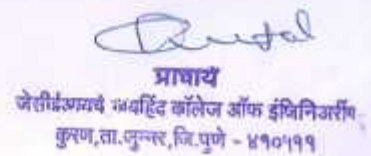 प्राचार्य
जेसीईआयचे जयहिंद कॉलेज ऑफ इंजिनिअरींग
कुरण,ता.जुन्नर,जि.पुणे - ४१०५११